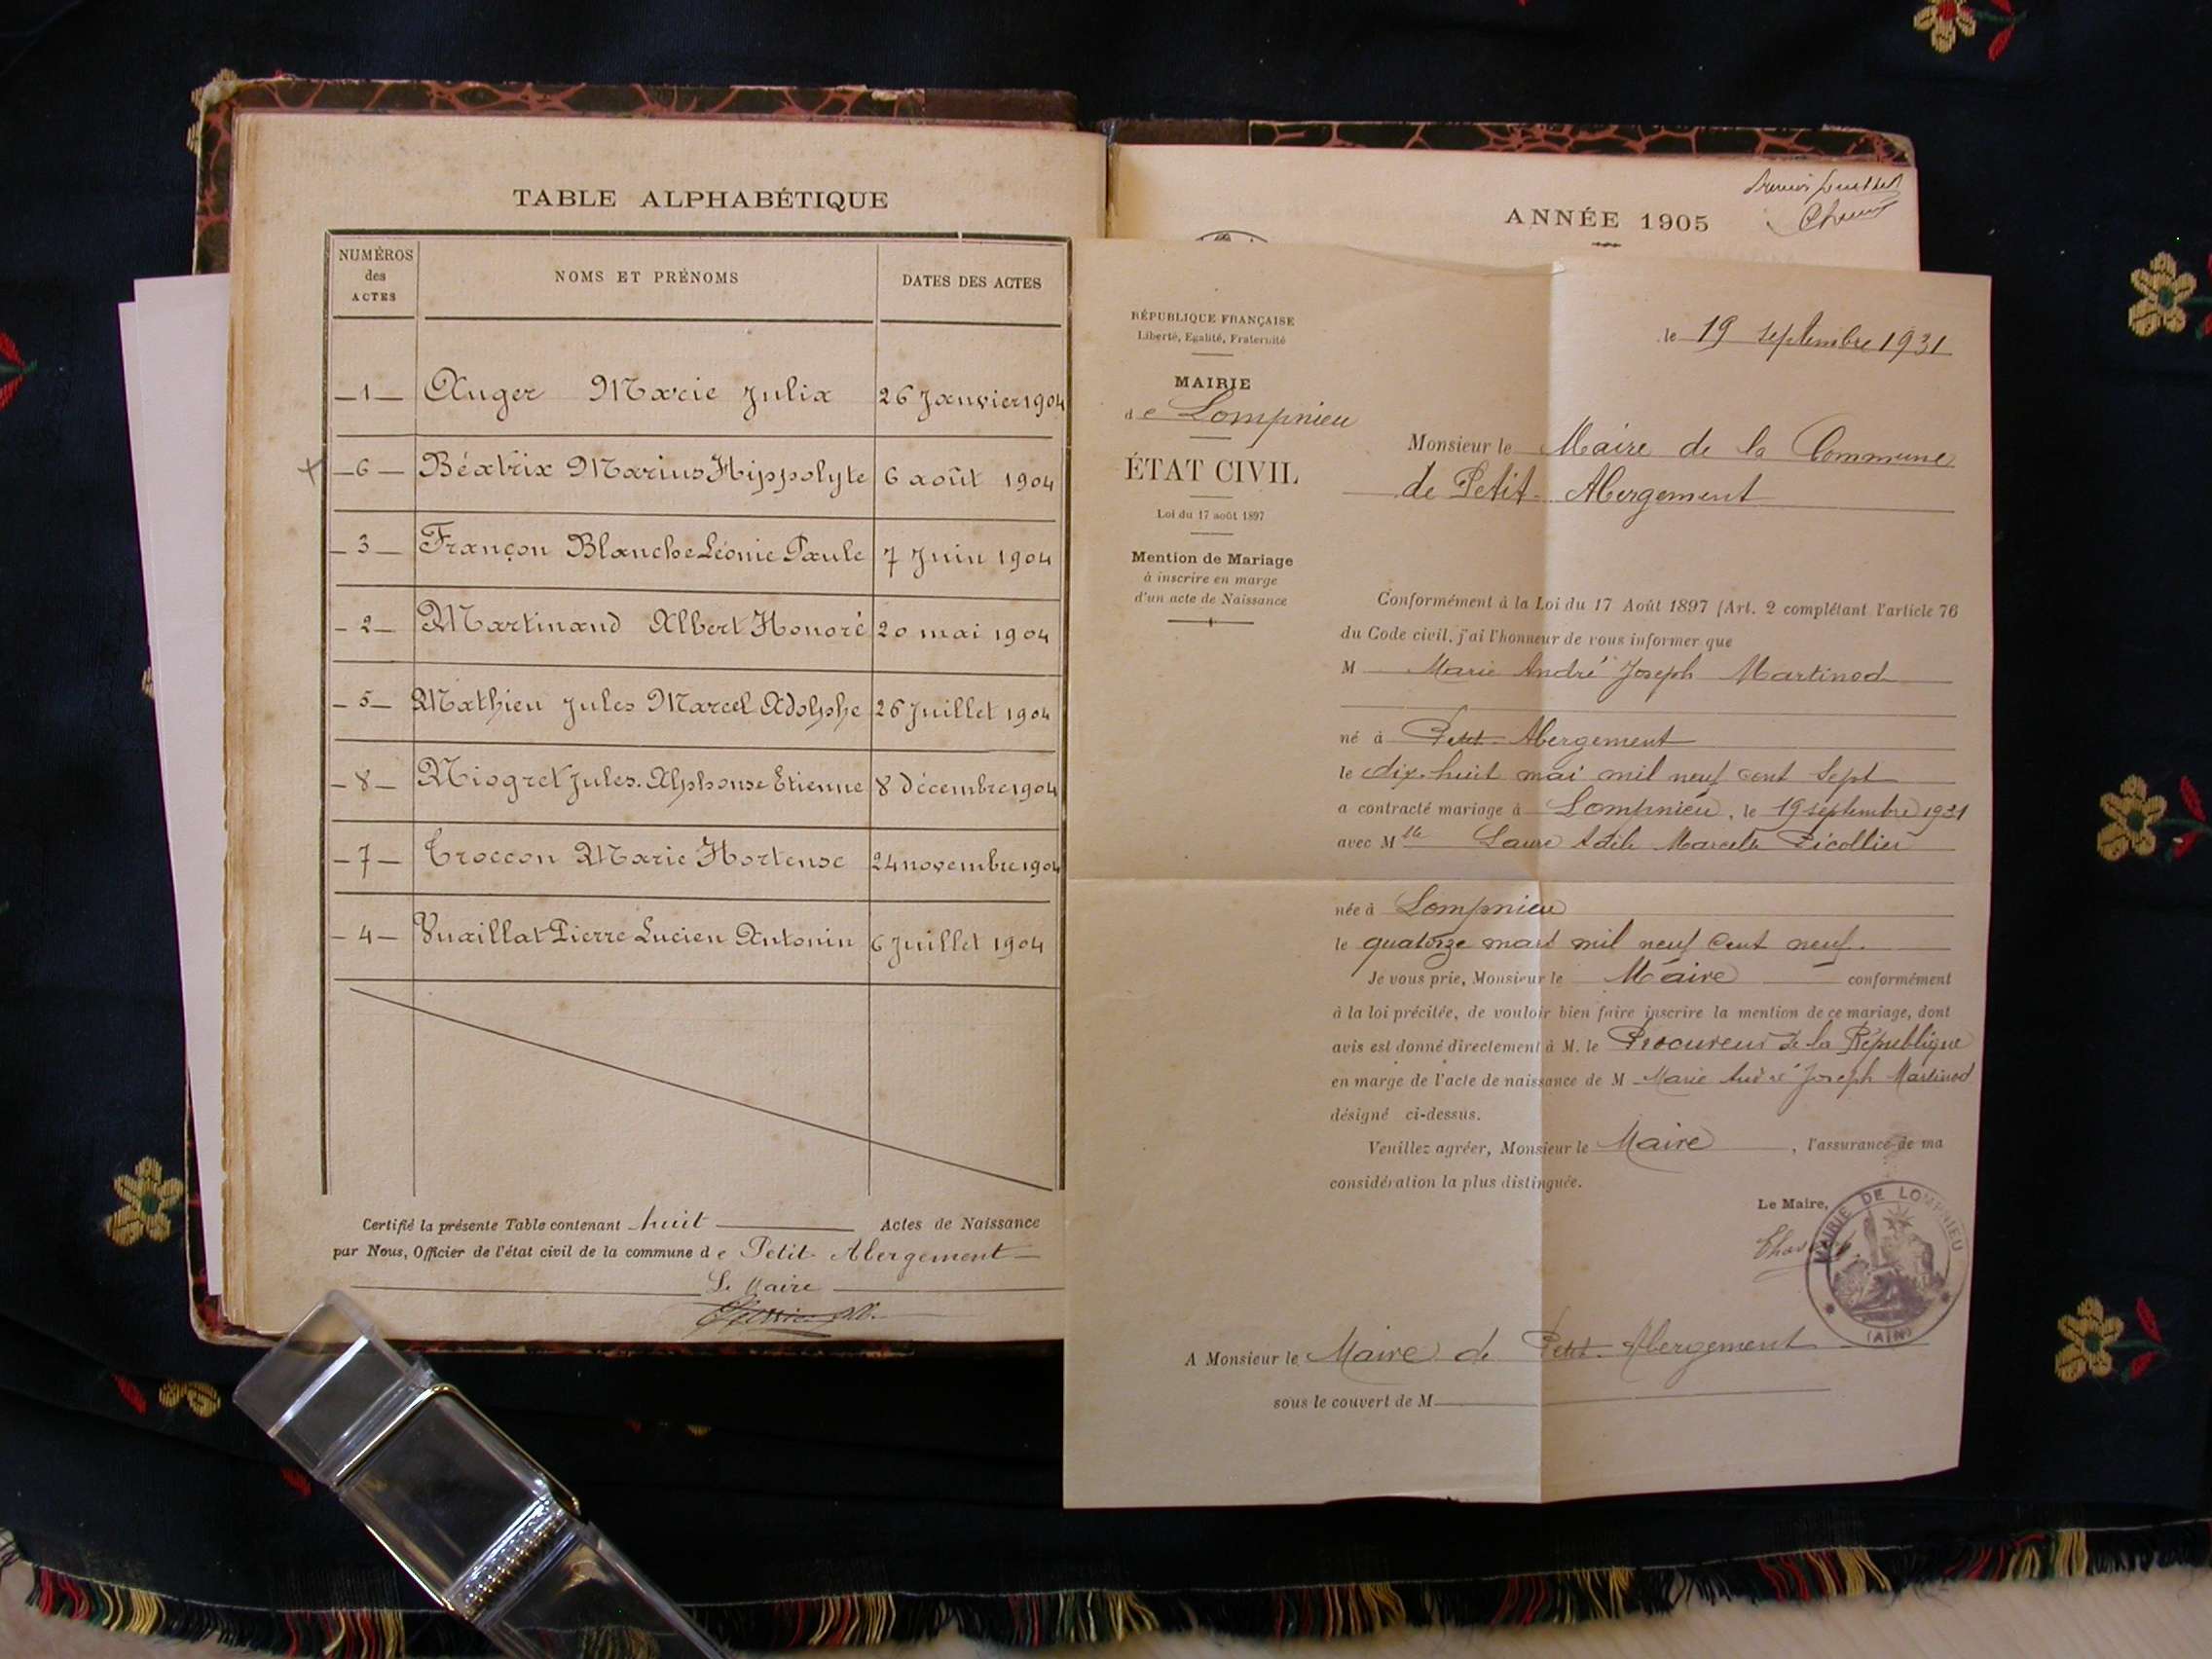 TABLE ALPHABÉTIQUE
NUMÉROS des ACTES
NOMS ET PRÉNOMS
DATES DES ACTES
-1- Auger Marie Julia 26 Janvier 1904
-6- Béatrix Marius Hippolyte 6 août 1904
-3- Françon Blanche Léonie Paule 7 Juin 1904
-2- Martinand Albert Honoré 20 mai 1904
-5- Mathieu Jules Marcel Adolphe 26 Juillet 1904
-8- Miogret Jules. Alphonse Etienne 8 décembre 1904
-7- Troccon Marie Hortense 24 novembre 1904
-4- Vuaillat Pierre Lucien Antonin 6 Juillet 1904
Certifié la présente Table contenant huit Actes de Naissance
par Nous, Officier de l'état civil de la commune de Petit Abergement
Le Maire
ANNÉE 1905
RÉPUBLIQUE FRANÇAISE
Liberté, Egalité, Fraternité
MAIRIE
de Lompnieu
ÉTAT CIVIL
Loi du 17 août 1897
Mention de Mariage
à inscrire en marge
d'un acte de Naissance
le 19 septembre 1931
Monsieur le Maire de la Commune
de Petit-Abergement
Conformément à la Loi du 17 Août 1897 (Art. 2 complétant l'article 76
du Code civil, j'ai l'honneur de vous informer que
M Marie André Joseph Martinod
né à Petit-Abergement
le dix-huit mai mil neuf cent sept
a contracté mariage à Lompnieu, le 19 septembre 1931
avec Mlle Laure Adèle Marcelle Picollier
née à Lompnieu
le quatorze mars mil neuf cent neuf.
Je vous prie, Monsieur le Maire conformément
à la loi précitée, de vouloir bien faire inscrire la mention de ce mariage, dont
avis est donné directement à M. le Procureur de la République
en marge de l'acte de naissance de M Marie André Joseph Martinod
désigné ci-dessus.
Veuillez agréer, Monsieur le Maire, l'assurance de ma
considération la plus distinguée.
Le Maire,
MAIRIE DE LOMPNIEU
(AIN)
A Monsieur le Maire de Petit-Abergement
sous le couvert de M